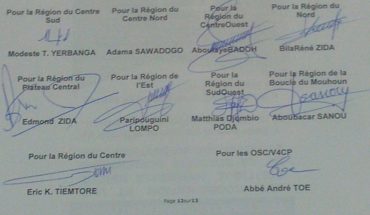 Pour la Région du Centre Sud
Pour la Région du Centre Nord
Pour la Région du CentreOuest
Pour la Région du Nord
Modeste T. YERBANGA
Adama SAWADOGO
AboulayeBADOH
BilaRéné ZIDA
Pour la Région du Plateau Central
Pour la Région de l'Est
Pour la Région du SudOuest
Pour la Région de la Boucle du Mouhoun
Edmond ZIDA
Paripouguini LOMPO
Matthias Djombio PODA
Aboubacar SANOU
Pour la Région du Centre
Pour les OSC/V4CP
Eric K. TIEMTORE
Abbé André TOE